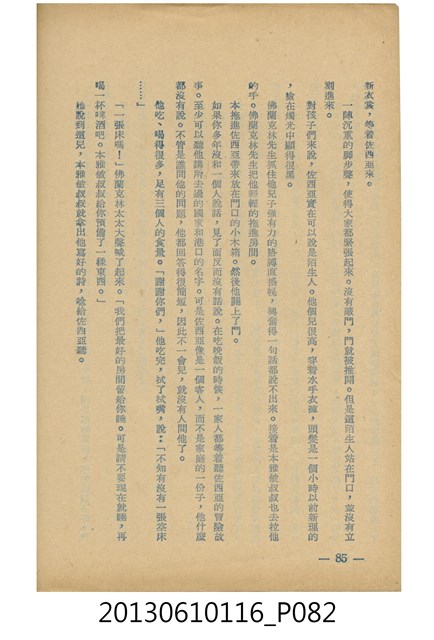 新衣裳，等着佐西亞來。
一陣沉重的脚步聲，使得大家都緊張起來。沒有敲門，門就被推開。但是這陌生人站在門口，並沒有立
刻進來。
對孩子們來說，佐西亞實在可以說是陌生人。他個兒很高，穿着水手衣褲，頭髮是一個小時以前新理的
，臉在燭光中顯得很黑。
佛蘭克林先生抓住他兒子強有力的胳膊直搖撼，興奮得一句話都說不出來。接着是本雅敏叔叔也去拉他
的手。佛蘭克林先生把他輕輕的推進房間。
本拖進佐西亞帶來放在門口的小木箱。然後他關上了門。
如果你多年沒和一個人說話，見了面反而沒有話說。在吃晚飯的時候，一家人都等着聽佐西亞的冒險故
事。至少可以聽他講所去過的國家和港口的名字。可是佐西亞像是一個客人，而不是家庭的一份子，他什麼
都沒有說。不管是誰問他的問題，他都回答得很簡短，因此不一會兒，就沒有人問他了。
他吃、喝得很多，足有三個人的食量。「謝謝你們，」他吃完，拭了拭嘴，說：「不知有沒有一張空床
……」
「一張床嗎！」佛蘭克林太太大聲喊了起來。「我們把最好的房間留給你睡。可是請不要現在就睡，再
喝一杯啤酒吧。本雅敏叔叔給你預備了一樣東西。」
她說到這兒，本雅敏叔叔就拿出他寫好的詩，唸給佐西亞聽。
— 85 —
20130610116_P082